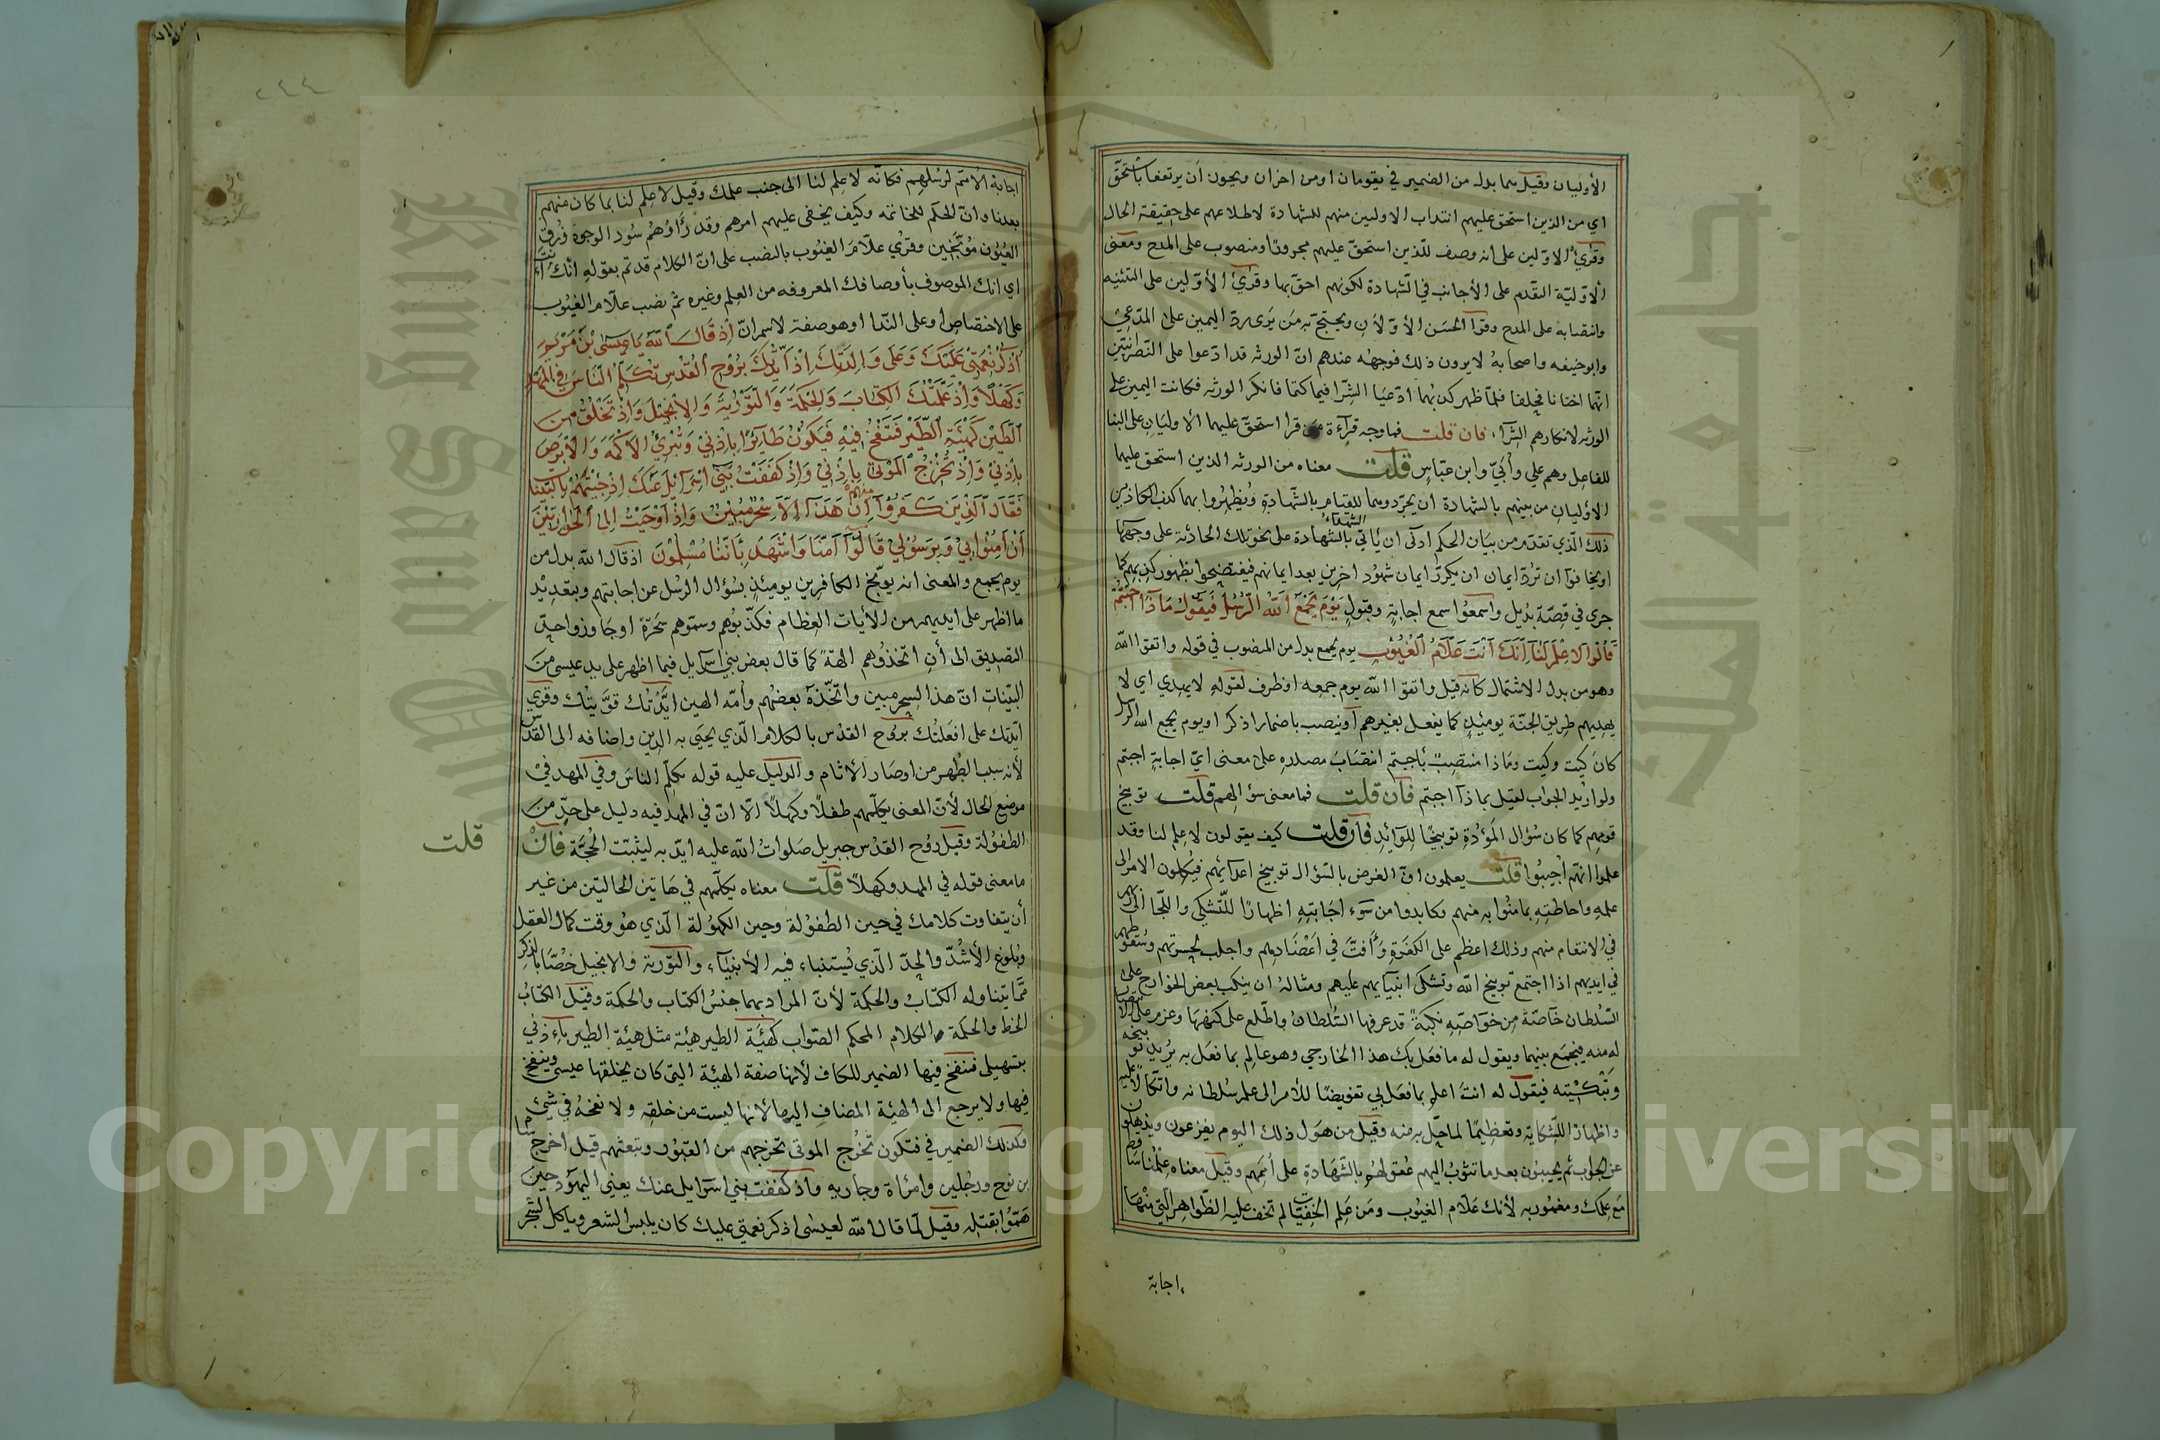 الأوليان وقيل هما بدل من الضمير في يقومان او من اخران ويجوز ان يرتفعا باستحق
اي من الذين استحق عليهم انتداب الاولين منهم للشهادة لاطلاعهم على حقيقة الحال
وقرئ الاولين على انه وصف للذين استحق عليهم مجرورا او منصوب على المدح ومعنى
الأولية التقدم على الأجانب في الشهادة لكونهم احق بها وقرئ الأولين على التثنية
وانتصابه على المدح وقرا الحسن الأولان ويحتج به من يرى رد اليمين على المدعي
وابو حنيفه واصحابه لا يرون ذلك فوجهه عندهم ان الورثه قد ادعوا على النصرانيين
انهما اختانا فحلفا فلما ظهر كذبهما ادعيا الشرا فيما كتما فانكر الورثه فكانت اليمين على
الورثه لانكارهم الشرآء فان قلت فما وجه قرآءة من قرا استحق عليهما الاوليان على البنا
للفاعل وهم علي وأبي وابن عباس قلت معناه من الورثه الذين استحق عليهما
الأوليان من بينهم بالشهادة ان يجردوهما للقيام بالشهادة ويظهروا بهما كذب الكاذبين
ذلك الذي تقدم من بيان الحكم ادنى ان يأتي الشهدآء بالشهادة على نحو تلك الحادثة على وجهها
او يخافوا ان ترد ايمان ان يكرر ايمان شهود اخرين بعد ايمانهم فيفتضحوا بظهور كذبهم كما
جرى في قصة بديل واسمعوا سمع اجابة وقبول يوم يجمع الله الرسل فيقول ماذا اجبتم
قالوا لا علم لنا انك انت علام الغيوب يوم يجمع بدل من المنصوب في قوله واتقوا الله
وهو من بدل الاشتمال كانه قيل واتقوا الله يوم جمعه او ظرف لقوله لا يهدي اي لا
يهديهم طريق الجنة يومئذ كما يفعل بغيرهم او ينصب باضمار اذكر او يوم يجمع الله الرسل
كان كيت وكيت وماذا منتصب بأجبتم انتصاب مصدره على معنى اي اجابة اجبتم
ولو اريد الجواب لقيل بماذا اجبتم فان قلت فما معنى سؤالهم قلت توبيخ
قومهم كما كان سؤال الموؤدة توبيخا للوائد فان قلت كيف يقولون لا علم لنا وقد
علموا انهم اجيبوا قلت يعلمون ان الغرض بالسؤال توبيخ اعدآيهم فيكلون الامر الى
علمه واحاطته بما منوا به منهم وكابدوا من سوء اجابتهم اظهارا للتشكي واللجأ الى ربهم
في الانتقام منهم وذلك اعظم على الكفرة وأفت في اعضادهم واجلب لحسرتهم وسقوطهم
في ايديهم اذا اجتمع توبيخ الله وتشكي انبيآيهم عليهم ومثاله ان ينكب بعض الخوارج على
السلطان خاصة من خواصه نكبة قد عرفها السلطان واطلع على كنهها وعزم على الانتصار
له منه فيجمع بينهما ويقول له ما فعل بك هذا الخارجي وهو عالم بما فعل به يريد توبيخه
وتبكيته فيقول له انت اعلم بما فعل بي تفويضا للأمر الى علم سلطانه واتكالا عليه
واظهارا للشكاية وتعظيما لما حل به منه وقيل من هول ذلك اليوم يفزعون ويذهلون
عن الجواب ثم يجيبون بعد ما تثوب اليهم عقولهم بالشهادة على أممهم وقيل معناه علمنا ساقط
مع علمك ومغمور به لأنك علام الغيوب ومن علم الخفيات لم تخف عليه الظواهر التي منها
اجابة
اجابة الامم لرسلهم فكانه لا علم لنا الى جنب علمك وقيل لا علم لنا بما كان منهم
بعدنا وان الحكم للخاتمه وكيف يخفى عليهم امرهم وقد رأوهم سود الوجوه زرق
العيون موبخين وقرئ علام الغيوب بالنصب على ان الكلام قد تم بقوله انك انت
اي انك الموصوف بأوصافك المعروفه من العلم وغيره ثم نصب علام الغيوب
على الاختصاص او على الندا او هو صفة لاسم ان اذ قال الله يا عيسى بن مريم
اذكر نعمتي عليك وعلى والدتك اذ أيدتك بروح القدس تكلم الناس في المهد
وكهلا واذ علمتك الكتاب والحكمة والتورية والانجيل واذ تخلق من
الطين كهيئة الطير فتنفخ فيه فيكون طآيرا باذني وتبرئ الأكمه والأبرص
باذني واذ تخرج الموتى باذني واذ كففت بني اسرآئيل عنك اذ جئتهم بالبينات
فقال الذين كفروا منهم ان هذا الا سحر مبين واذ اوحيت الى الحواريين
ان آمنوا بي وبرسولي قالوا آمنا واشهد بأننا مسلمون اذ قال الله بدل من
يوم يجمع والمعنى انه يوبخ الكافرين يومئذ بسؤال الرسل عن اجابتهم وبتعديد
ما اظهر على ايديهم من الأيات العظام فكذبوهم وسموهم سحرة او جاوزوا حد
التصديق الى أن اتخذوهم الهة كما قال بعض بني اسرآيل فيما اظهر على يد عيسى من
البينات ان هذا السحر مبين واتخذه بعضهم وأمه الهين ايدتك قويتك وقرئ
آيدتك على افعلتك بروح القدس بالكلام الذي يحيى به الدين واضافه الى القدس
لأنه سبب الطهر من اوصار الأثام والدليل عليه قوله تكلم الناس وفي المهد في
موضع الحال لأن المعنى يكلمهم طفلا وكهلا الا ان في المهد فيه دليل على حد من
الطفولة وقيل روح القدس جبريل صلوات الله عليه ايد به ليثبت الحجة فان
قلت
ما معنى قوله في المهد وكهلا قلت معناه يكلمهم في هاتين الحالتين من غير
أن يتفاوت كلامك في حين الطفولة وحين الكهولة الذي هو وقت كمال العقل
وبلوغ الأشد والحد الذي يستنباء فيه الأنبيآء والتورية والانجيل خصا بالذكر
مما يتناوله الكتاب والحكمة لأن المراد بهما جنس الكتاب والحكمة وقيل الكتاب
الخط والحكمة الكلام المحكم الصواب كهيئة الطير هيئة مثل هيئة الطير باذني
بتسهيلي فتنفخ فيها الضمير للكاف لأنها صفة الهيئة التي كان يخلقها عيسى وينفخ
فيها ولا يرجع الى الهيئة المضاف اليها لأنها ليست من خلقه ولا نفخه في شئ
وكذلك الضمير في فتكون تخرج الموتى تخرجهم من القبور وتبعثهم قيل اخرج سام
بن نوح ورجلين وامرأة وجارية واذ كففت بني اسرآيل عنك يعني اليهود حين
هموا بقتله وقيل لما قال الله لعيسى اذكر نعمتي عليك كان يلبس الشعر وياكل الشجر
King Saud University
جامعة الملك سعود
Copyright © King Saud University